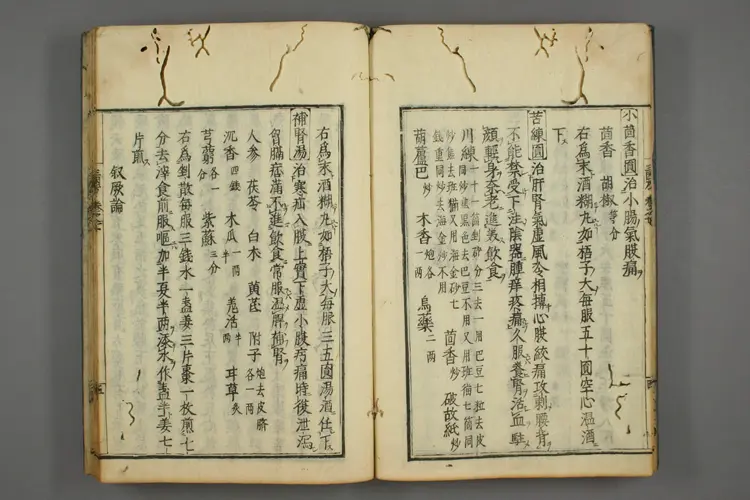 小茴香圓治小腸氣腹痛
茴香 胡椒等分
右為末酒糊丸如梧子大每服五十圓空心溫酒
下
苦練圓治肝腎氣虛風冷相搏心腹絞痛攻刺腰背
不能禁受下注陰器腫痒疼痛久服養腎活血駐
顏輕身奈老進美飲食
川練
葫蘆巴炒 木香炮各一兩 烏藥二兩
茴香炒 破故紙炒
右為末酒糊丸如梧子大每服三五圓湯酒任下
補腎湯治寒疝入腹上實下虛小腹疠痛時復泄瀉
胷膈痞滿不進飲食常服溫脾補腎
人參 茯苓 白朮 黃芪 附子炮去皮臍各一兩
沉香四錢 木瓜一兩 羗活半兩 甘草炙
芎藭各一 紫蘇三分
右為剉散每服三錢水一盞姜三片棗一枚煎七
分去滓食前服嘔加半夏半兩添水作盞半姜七
片煎
叙厥論